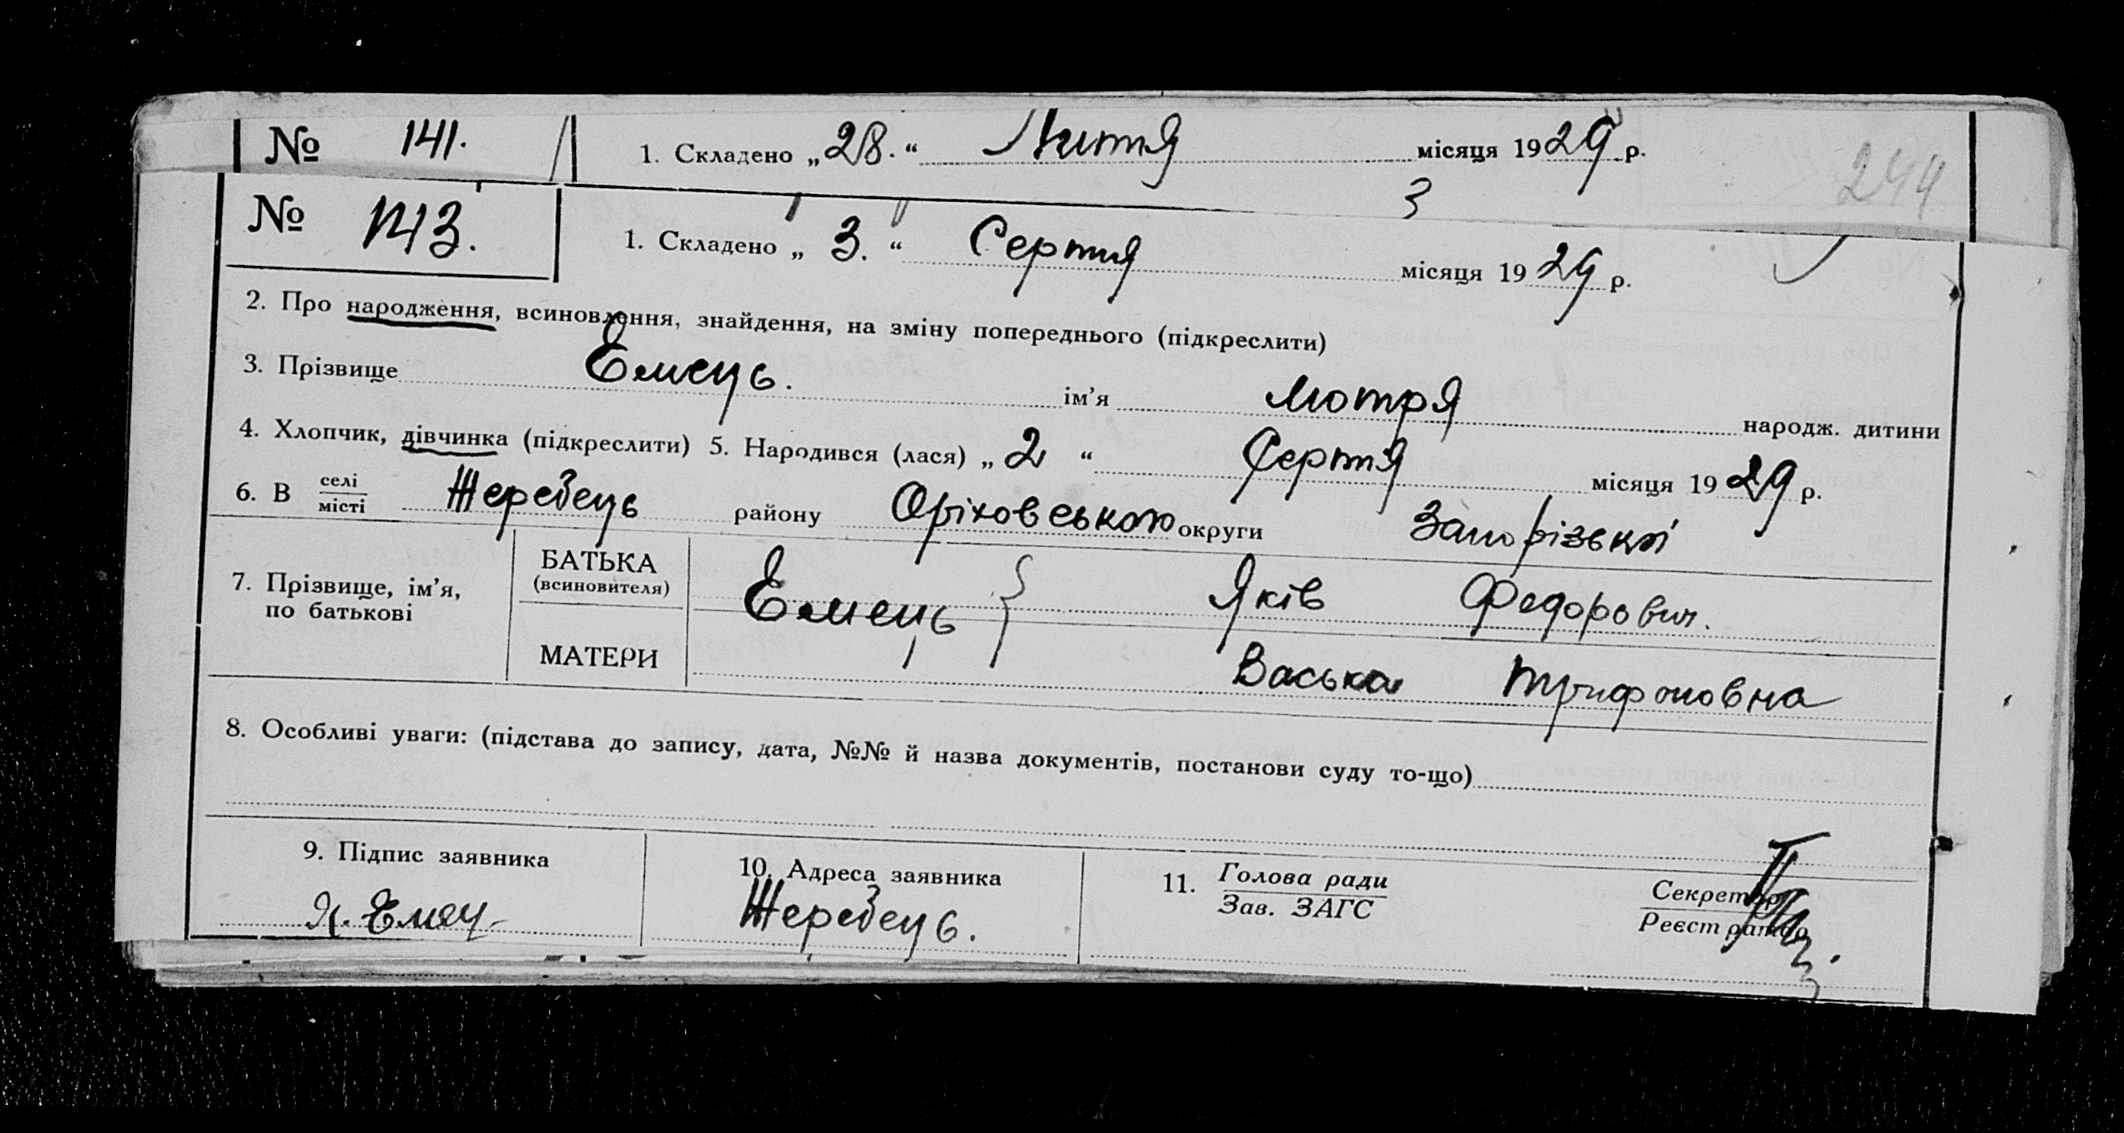 № 141. 1. Складено „28.“ Липня місяця 1929 р.
244
3
№ 143. 1. Складено „3.“ Серпня місяця 1929 р.
2. Про народження, всиновлення, знайдення, на зміну попереднього (підкреслити)
3. Прізвище Емець. ім’я Мотря народж. дитини
4. Хлопчик, дівчинка (підкреслити) 5. Народився (лася) „2“ Серпня місяця 1929 р.
6. В селі місті Жеребець району Оріховського округи Запорізької
7. Прізвище, ім’я, по батькові
БАТЬКА (всиновителя) Емець Яків Федорович.
МАТЕРИ Васька Трифоновна
8. Особливі уваги: (підстава до запису, дата, №№ й назва документів, постанови суду то-що)
9. Підпис заявника 10. Адреса заявника 11. Голова ради Секретар
Зав. ЗАГС Реєстратор
Я. Емец Жеребець.